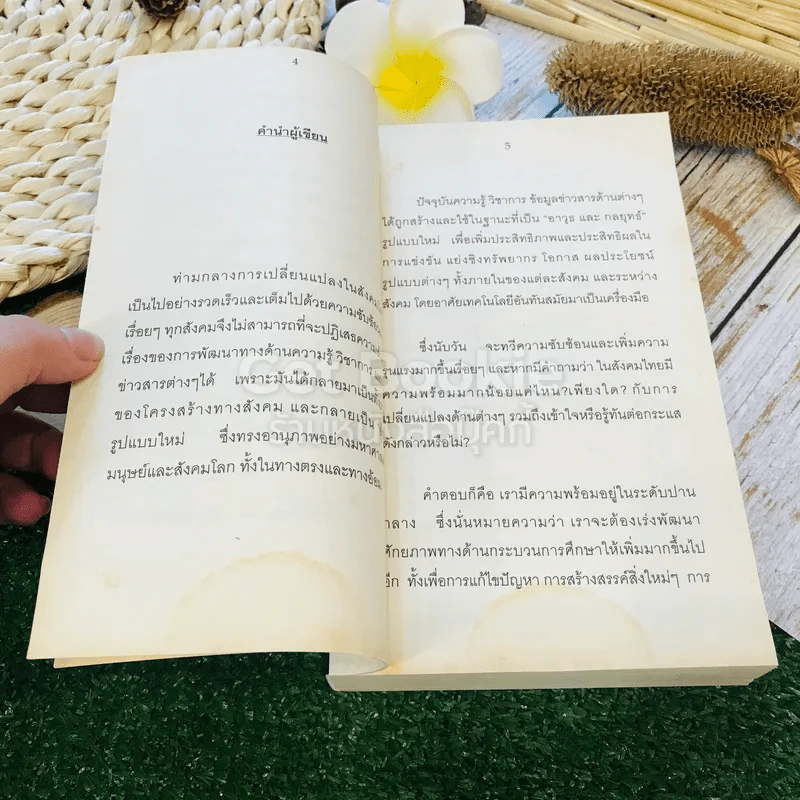 4
คำนำผู้เขียน
ท่ามกลางการเปลี่ยนแปลงในสังคม
เป็นไปอย่างรวดเร็วและเต็มไปด้วยความซับซ้อน
เรื่อยๆ ทุกสังคมจึงไม่สามารถที่จะปฏิเสธความ
เรื่องของการพัฒนาทางด้านความรู้ วิชาการ
ข่าวสารต่างๆได้ เพราะมันได้กลายมาเป็น
ของโครงสร้างทางสังคม และกลายเป็น
รูปแบบใหม่ ซึ่งทรงอานุภาพอย่างมหาศาล
มนุษย์และสังคมโลก ทั้งในทางตรงและทางอ้อม
5
ปัจจุบันความรู้ วิชาการ ข้อมูลข่าวสารด้านต่างๆ
ได้ถูกสร้างและใช้ในฐานะที่เป็น "อาวุธ และ กลยุทธ์"
รูปแบบใหม่ เพื่อเพิ่มประสิทธิภาพและประสิทธิผลใน
การแข่งขัน แย่งชิงทรัพยากร โอกาส ผลประโยชน์
รูปแบบต่างๆ ทั้งภายในของแต่ละสังคม และระหว่าง
สังคม โดยอาศัยเทคโนโลยีอันทันสมัยมาเป็นเครื่องมือ
ซึ่งนับวัน จะทวีความซับซ้อนและเพิ่มความ
รุนแรงมากขึ้นเรื่อยๆ และหากมีคำถามว่า ในสังคมไทยมี
ความพร้อมมากน้อยแค่ไหน?เพียงใด? กับการ
เปลี่ยนแปลงด้านต่างๆ รวมถึงเข้าใจหรือรู้ทันต่อกระแส
ดังกล่าวหรือไม่?
คำตอบก็คือ เรามีความพร้อมอยู่ในระดับปาน
กลาง ซึ่งนั่นหมายความว่า เราจะต้องเร่งพัฒนา
ศักยภาพทางด้านกระบวนการศึกษาให้เพิ่มมากขึ้นไป
อีก ทั้งเพื่อการแก้ไขปัญหา การสร้างสรรค์สิ่งใหม่ๆ การ
Got Bookie
รวมหนังสือยุคก์